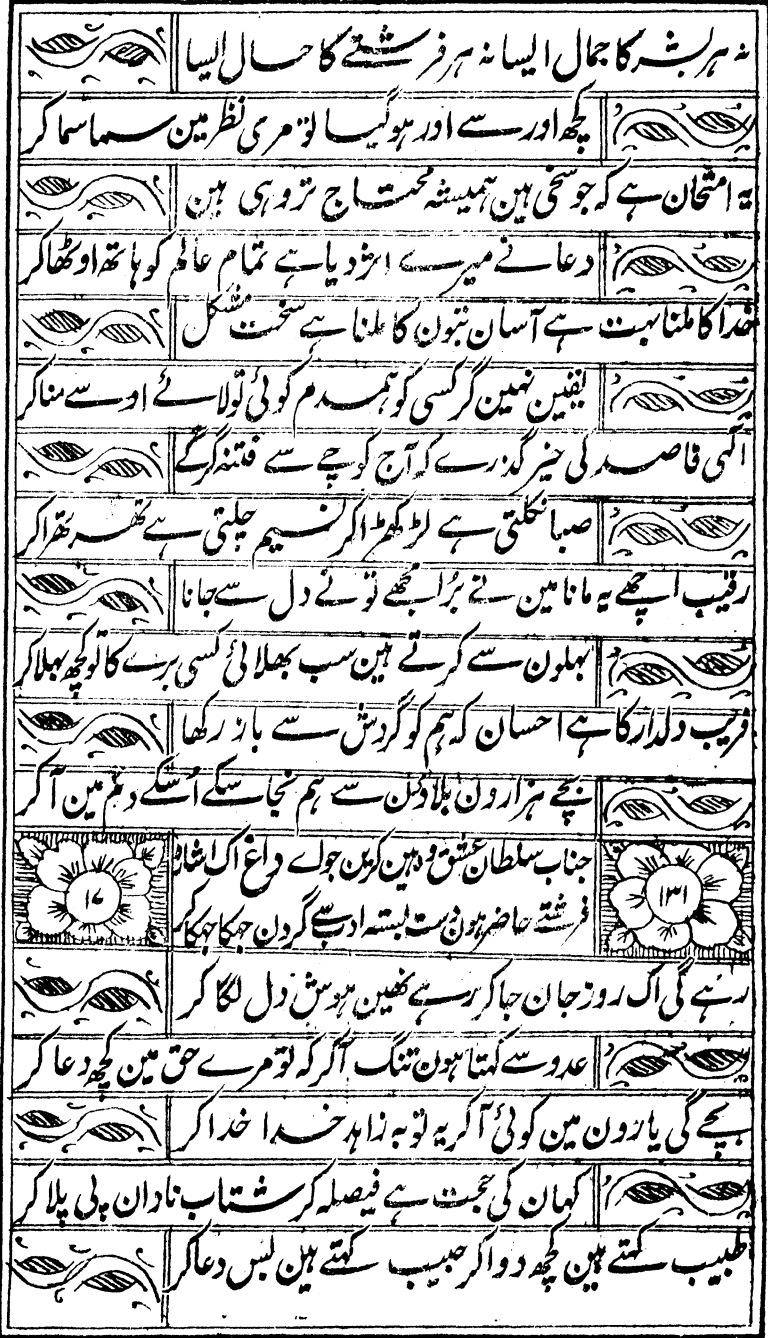 نہ ہر بشر کا جمال ایسا نہ ہر فرشتے کا حال ایسا
کچھ اور سے اور ہو گیا تو مری نظر مین سما سما کر
یہ امتحان ہے کہ جو سخی ہین ہمیشہ محتاج تر وہی ہین
دعا نے میرے اثر دیا ہے تمام عالم کو ہاتھ اوٹھا کر
خدا کا ملنا بہت ہے آسان بتون کا ملنا ہے سخت مشکل
یقین نہین گر کسی کو ہمدم کوئی تو لائے اوسے منا کر
الٰہی قاصد کی خیر گذرے کہ آج کوچے سے فتنہ گر کے
صبا نکلتی ہے لڑکھڑا کر نسیم چلتی ہے تھرتھرا کر
رقیب اچھے یہ مانا مین نے برُا مجھے تو نے دل سے جانا
بہلون سے کرتے ہین سب بھلائی کسی برے کا تو کچھ بہلا کر
فریب دلدار کا ہے احسان کہ ہم کو گردش سے باز رکھا
بچے ہزارون بلاؤن سے ہم نجا سکے اُسکے دم مین آ کر
جناب سلطان عشق وہ ہین کرین جو اے داغ اک اشارہ
فرشتے حاضر ہون دست بستہ ادب سے گردن جہکا جہکا کر
۱۳۱
۱۷
رہے گی اک روز جان جا کر رہے نھین ہوش دل لگا کر
عدو سے کہتا ہون تنگ آ کر کہ تو مرے حق مین کچھ دعا کر
بچے گی یارون مین کوئی آ کر یہ توبہ زاہد خدا خدا کر
کہان کی حجت ہے فیصلہ کر شتاب نادان پی پلا کر
طبیب کہتے ہین کچھ دوا کر حبیب کہتے ہین بس دعا کر